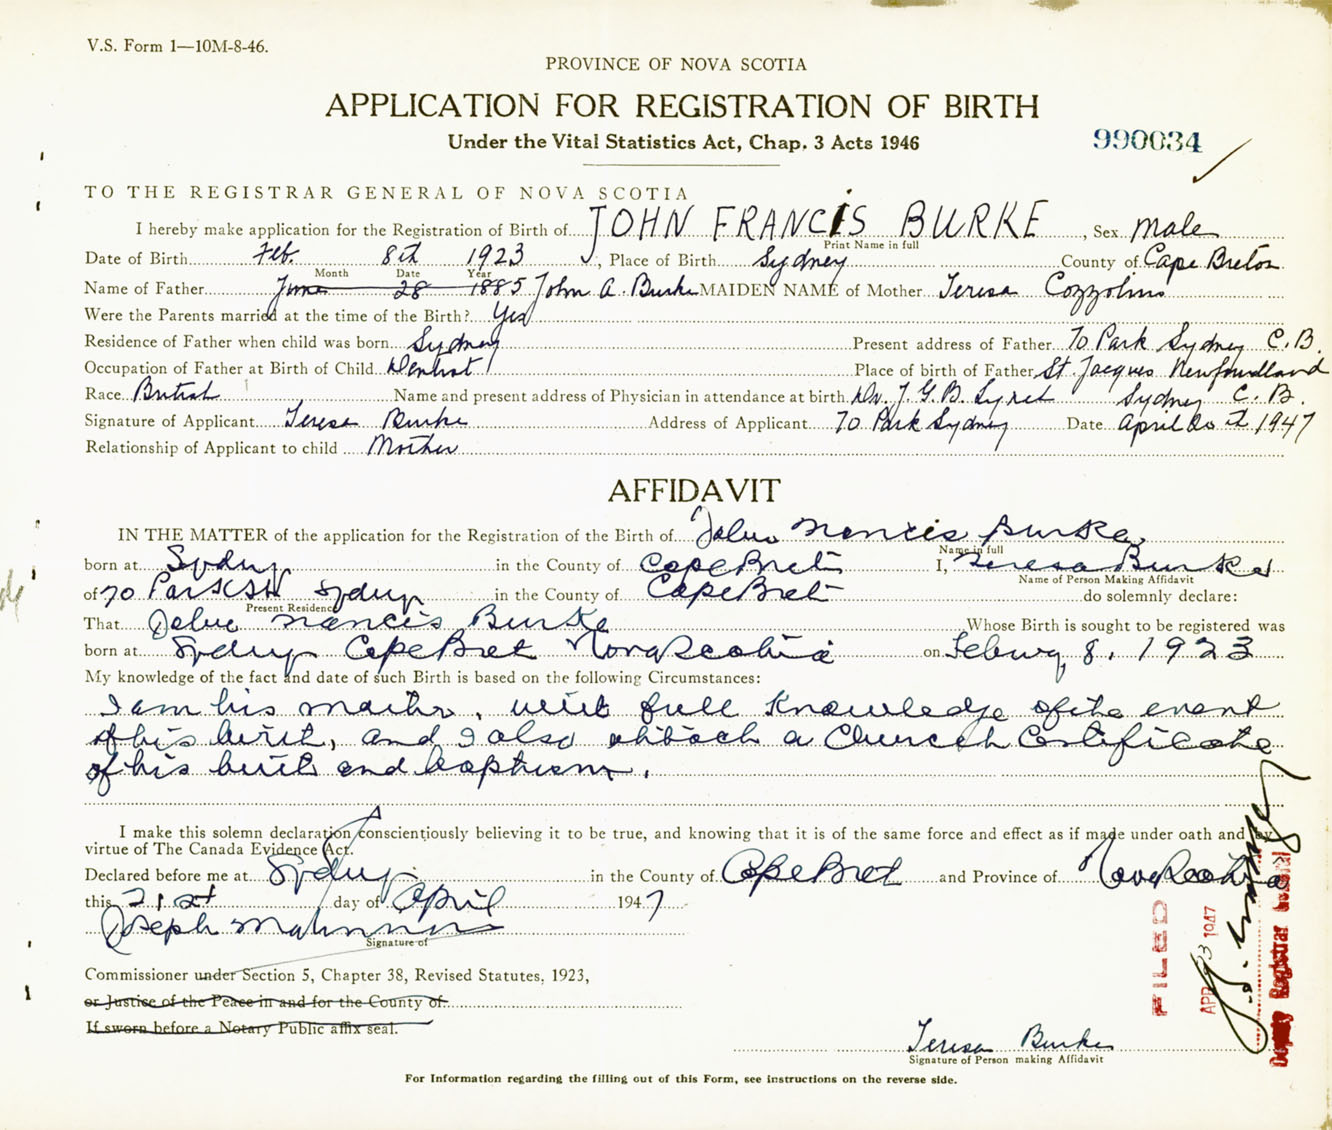 V.S. Form 1—10M-8-46.
PROVINCE OF NOVA SCOTIA
APPLICATION FOR REGISTRATION OF BIRTH
Under the Vital Statistics Act, Chap. 3 Acts 1946
990034
TO THE REGISTRAR GENERAL OF NOVA SCOTIA
I hereby make application for the Registration of Birth of JOHN FRANCIS BURKE, Sex Male
Print Name in full
Date of Birth Feb. 8th 1923, Place of Birth Sydney County of Cape Breton
Month Date Year
Name of Father June 28 1885 John A. Burke MAIDEN NAME of Mother Teresa Cozzolino
Were the Parents married at the time of the Birth? Yes
Residence of Father when child was born Sydney Present address of Father 70 Park Sydney C.B.
Occupation of Father at Birth of Child Dentist Place of birth of Father St. Jacques Newfoundland
Race British Name and present address of Physician in attendance at birth Dr. J. G. B. Sydney C. B.
Signature of Applicant Teresa Burke Address of Applicant 70 Park Sydney Date April 20th 1947
Relationship of Applicant to child Mother
AFFIDAVIT
IN THE MATTER of the application for the Registration of the Birth of John Francis Burke
Name in full
born at Sydney in the County of Cape Bret I, Teresa Burke
Name of Person Making Affidavit
of 70 Park St Sydney in the County of Cape Bret do solemnly declare:
Present Residence
That John Francis Burke Whose Birth is sought to be registered was
born at Sydney Cape Bret Nova Scotia on February 8, 1923
My knowledge of the fact and date of such Birth is based on the following Circumstances:
I am his mother, with full knowledge of the event
of his birth, and I also attach a Church Certificate
of his birth and baptism.
I make this solemn declaration conscientiously believing it to be true, and knowing that it is of the same force and effect as if made under oath and by
virtue of The Canada Evidence Act.
Declared before me at Sydney in the County of Cape Bret and Province of Nova Scotia
this 21st day of April 1947
Joseph
Signature of
Commissioner under Section 5, Chapter 38, Revised Statutes, 1923,
or Justice of the Peace in and for the County of
If sworn before a Notary Public affix seal.
FILED
APR 23 1947
Deputy Registrar General
Teresa Burke
Signature of Person making Affidavit
For Information regarding the filling out of this Form, see instructions on the reverse side.